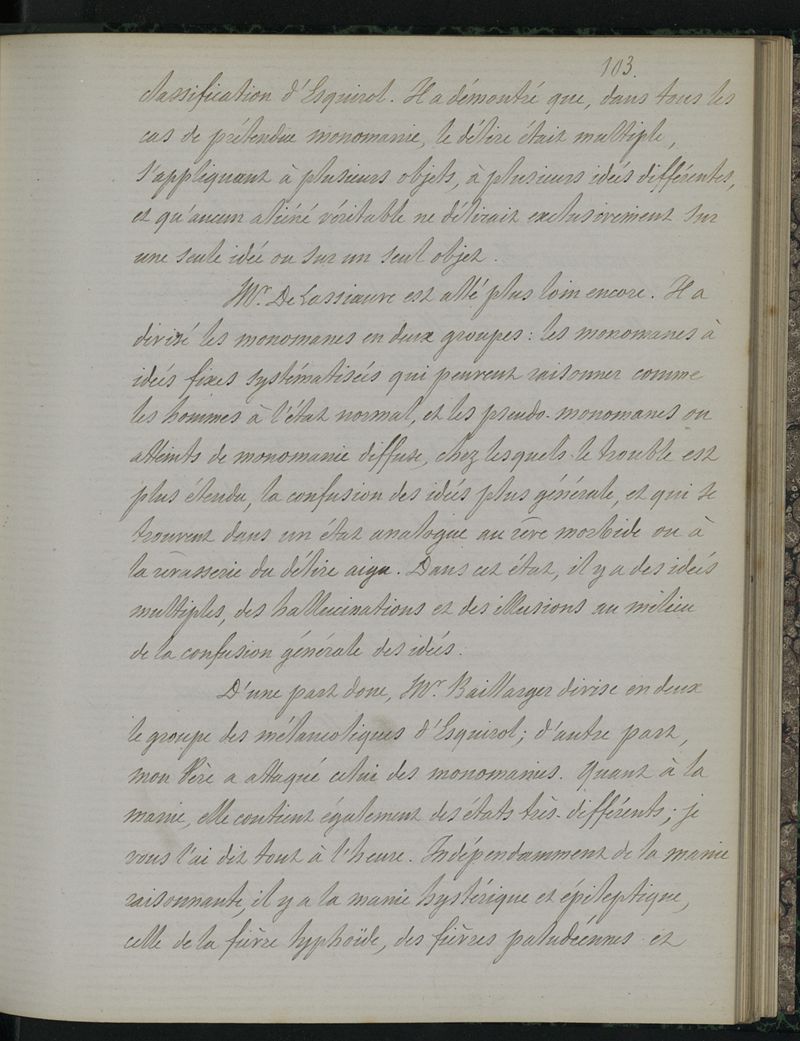 103.
classification d'Esquirol. Il a démontré que, dans tous les
cas de prétendue monomanie, le délire était multiple,
s'appliquant à plusieurs objets, à plusieurs idées différentes,
et qu'aucun aliéné véritable ne délirait exclusivement sur
une seule idée ou sur un seul objet.
Mr. Delasiauve est allé plus loin encore. Il a
divisé les monomanes en deux groupes : les monomanes à
idées fixes systématisées qui peuvent raisonner comme
les hommes à l'état normal, et les pseudo-monomanes ou
atteints de monomanie diffuse, chez lesquels le trouble est
plus étendu, la confusion des idées plus générale, et qui se
trouvent dans un état analogue au rêve morbide ou à
la rêvasserie du délire aigu. Dans cet état, il y a des idées
multiples, des hallucinations et des illusions au milieu
de la confusion générale des idées.
D'une part donc, Mr. Baillarger divise en deux
le groupe des mélancoliques d'Esquirol ; d'autre part,
mon Père a attaqué celui des monomanies. Quant à la
manie, elle contient également des états très-différents ; je
vous l'ai dit tout à l'heure. Indépendamment de la manie
raisonnante, il y a la manie hystérique et épileptique,
celle de la fièvre typhoïde, des fièvres paludéennes et